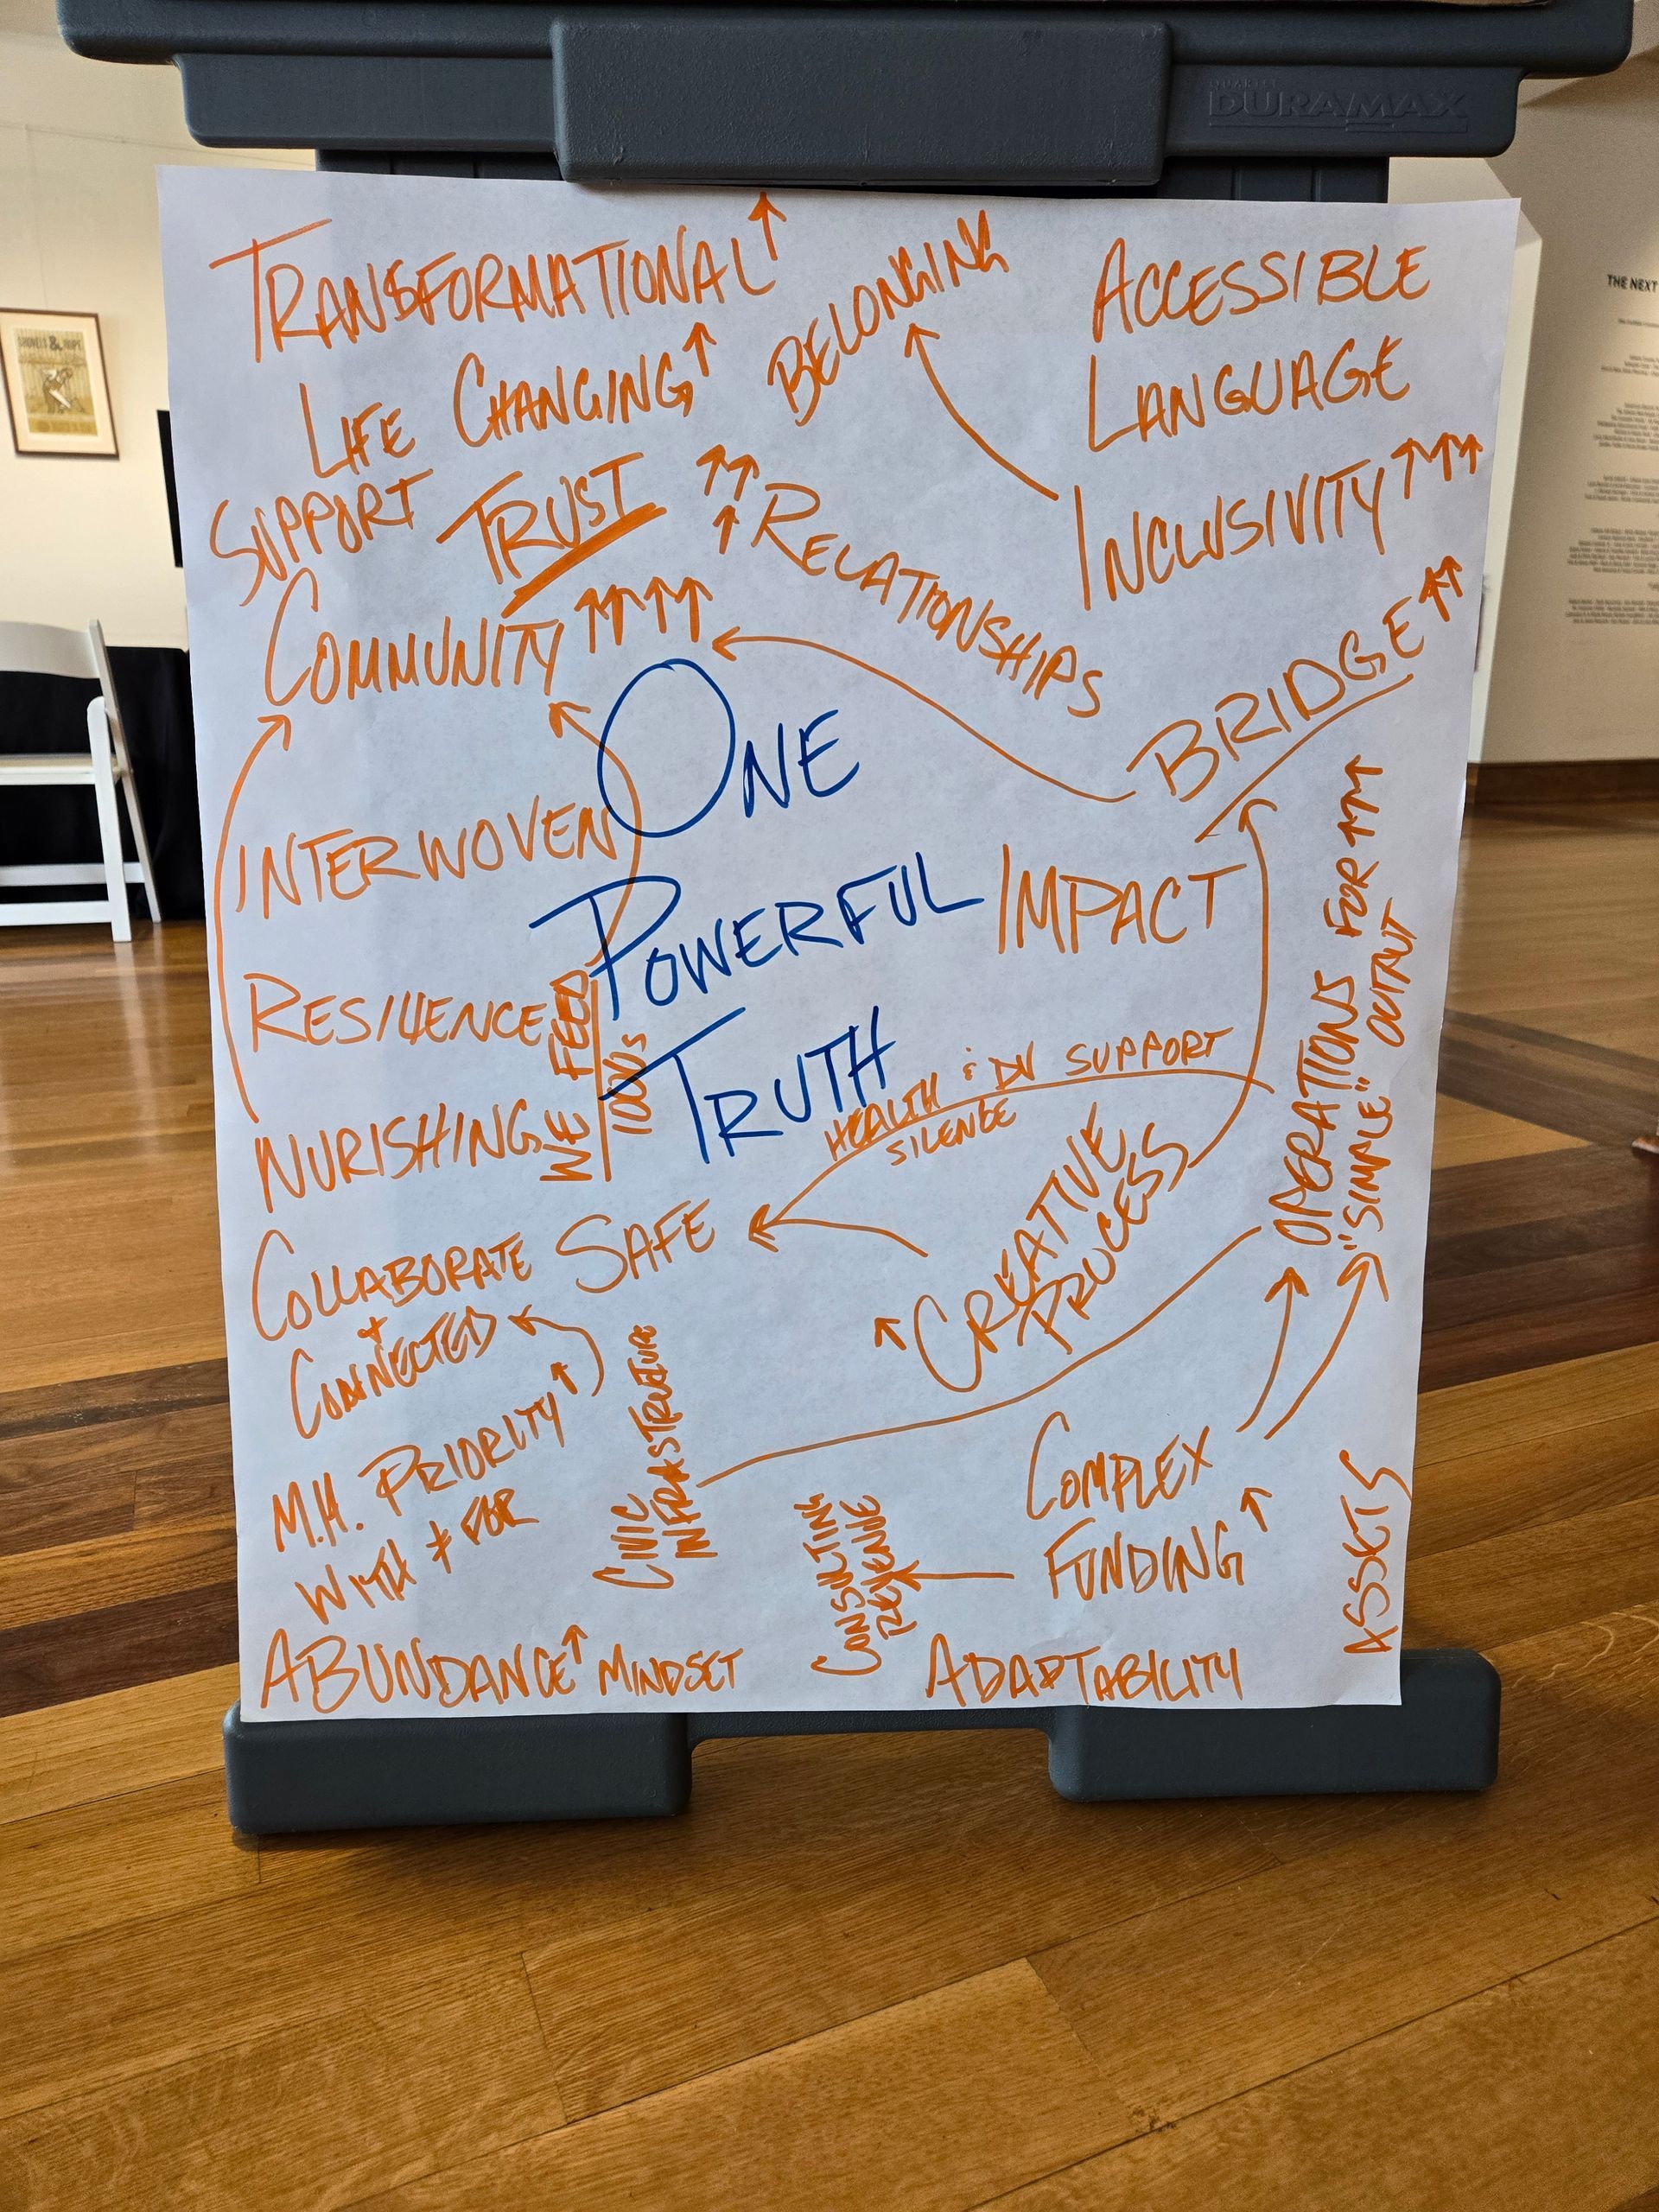 QUARTET
DURAMAX
TRANSFORMATIONAL ↑
BELONGING
ACCESSIBLE
LANGUAGE
LIFE CHANGING ↑
SUPPORT
TRUST
↑↑↑ RELATIONSHIPS
INCLUSIVITY ↑↑↑
COMMUNITY ↑↑↑↑
BRIDGE ↑↑
ONE
POWERFUL
TRUTH
INTERWOVEN
IMPACT
RESILIENCE
WE FEED
1000s
NURISHING
HEALTH & DV SUPPORT
SILENCE
OPERATIONS FOR ↑↑↑
"SIMPLE" OUTPUT
COLLABORATE
+
CONNECTED
SAFE
↑ CREATIVE
PROCESS
M.H. PRIORITY ↑
WITH ≠ FOR
CIVIC
INFRASTRUCTURE
CONSULTING
REVENUE
COMPLEX
FUNDING ↑
ASSETS
ABUNDANCE ↑ MINDSET
ADAPTABILITY
SHOVELS & ROPE
THE NEXT